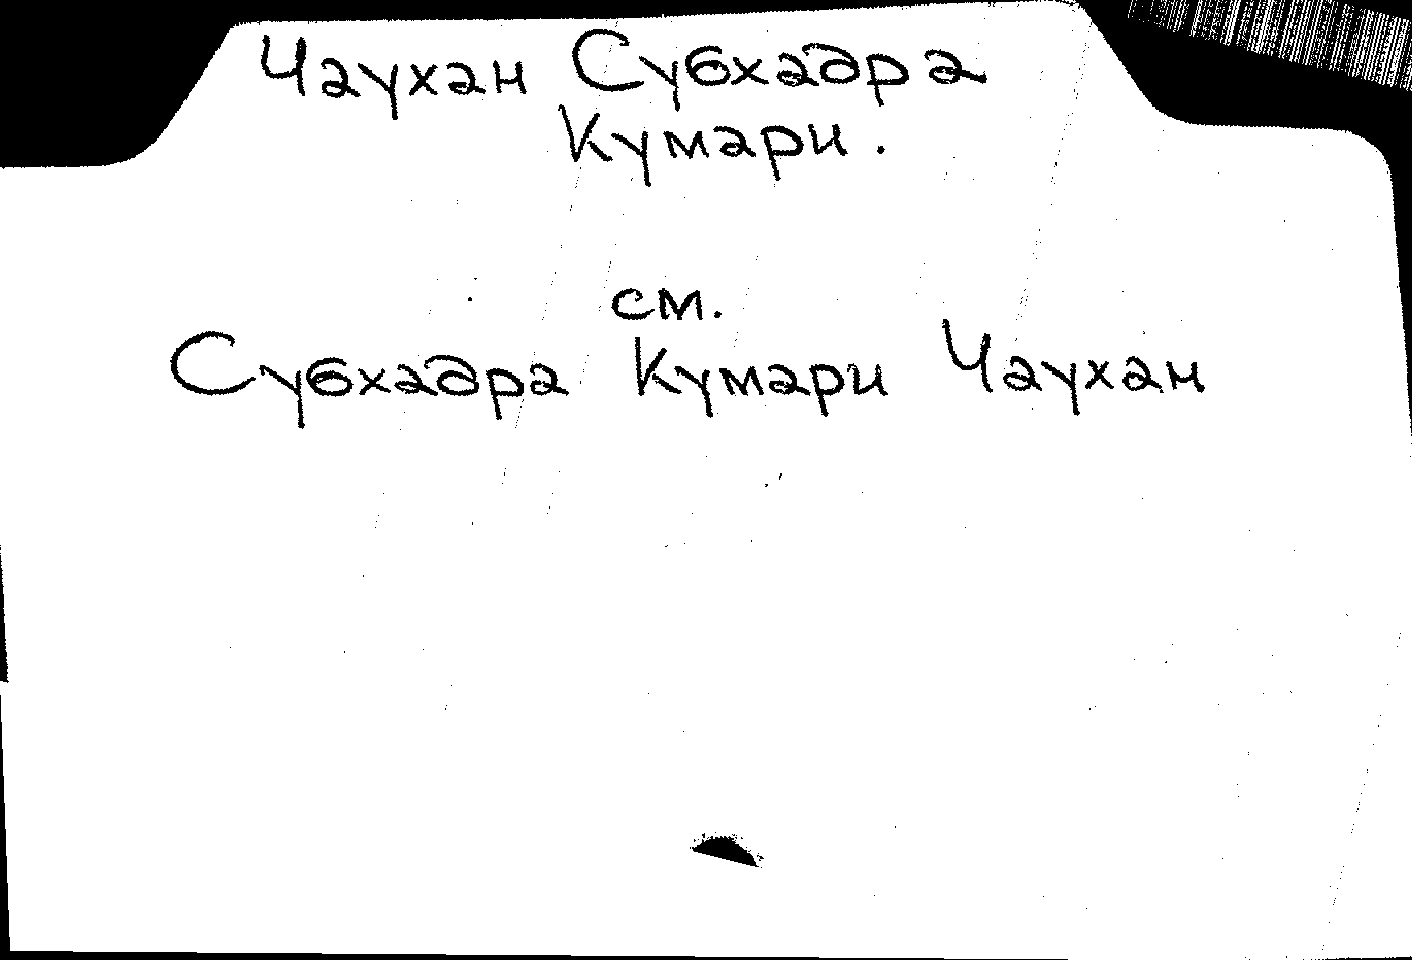 Чаухан Субхадра
Кумари.
см.
Субхадра Кумари Чаухан